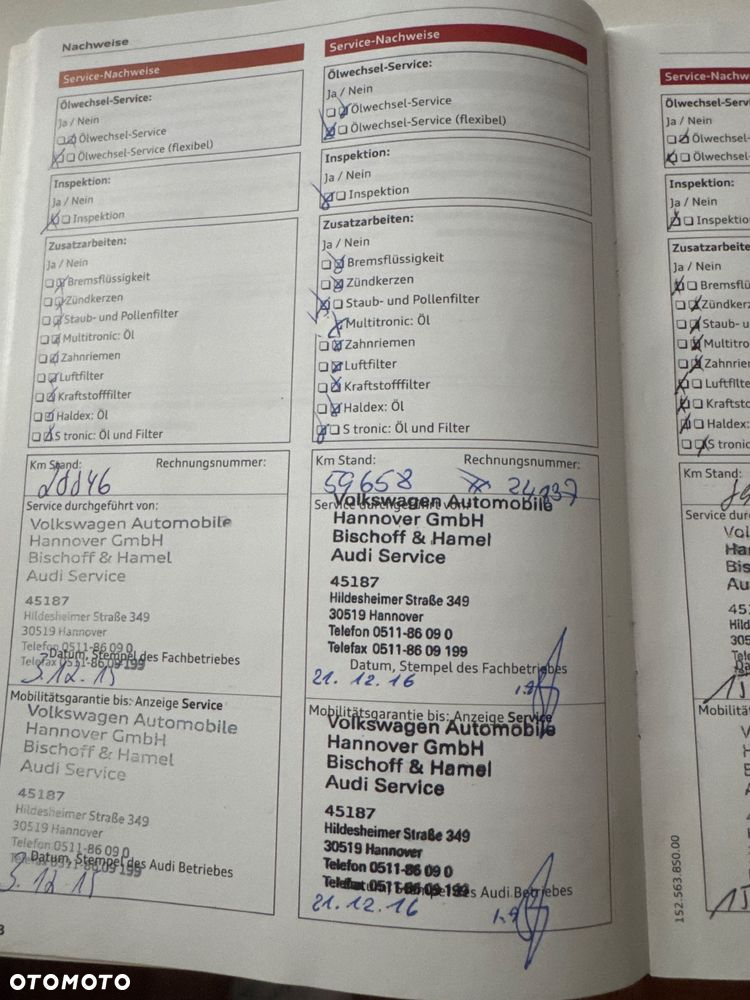 Nachweise
Service-Nachweise
Ölwechsel-Service:
Ja / Nein
Ölwechsel-Service
Ölwechsel-Service (flexibel)
Inspektion:
Ja / Nein
Inspektion
Zusatzarbeiten:
Ja / Nein
Bremsflüssigkeit
Zündkerzen
Staub- und Pollenfilter
Multitronic: Öl
Zahnriemen
Luftfilter
Kraftstofffilter
Haldex: Öl
S tronic: Öl und Filter
Km Stand: Rechnungsnummer:
Service durchgeführt von:
Volkswagen Automobile
Hannover GmbH
Bischoff & Hamel
Audi Service
45187
Hildesheimer Straße 349
30519 Hannover
Telefon 0511-86 09 0
Telefax 0511-86 09 199
Datum, Stempel des Fachbetriebes
3.12.15
Mobilitätsgarantie bis: Anzeige Service
Volkswagen Automobile
Hannover GmbH
Bischoff & Hamel
Audi Service
45187
Hildesheimer Straße 349
30519 Hannover
Telefon 0511-86 09 0
Telefax 0511-86 09 199
Datum, Stempel des Audi Betriebes
3.12.15
Service-Nachweise
Ölwechsel-Service:
Ja / Nein
Ölwechsel-Service
Ölwechsel-Service (flexibel)
Inspektion:
Ja / Nein
Inspektion
Zusatzarbeiten:
Ja / Nein
Bremsflüssigkeit
Zündkerzen
Staub- und Pollenfilter
Multitronic: Öl
Zahnriemen
Luftfilter
Kraftstofffilter
Haldex: Öl
S tronic: Öl und Filter
Km Stand: Rechnungsnummer:
59658
Service durchgeführt von:
Volkswagen Automobile
Hannover GmbH
Bischoff & Hamel
Audi Service
45187
Hildesheimer Straße 349
30519 Hannover
Telefon 0511-86 09 0
Telefax 0511-86 09 199
Datum, Stempel des Fachbetriebes
21.12.16
Mobilitätsgarantie bis: Anzeige Service
Volkswagen Automobile
Hannover GmbH
Bischoff & Hamel
Audi Service
45187
Hildesheimer Straße 349
30519 Hannover
Telefon 0511-86 09 0
Telefax 0511-86 09 199
Datum, Stempel des Audi Betriebes
21.12.16
Service-Nachw
Ölwechsel-Serv
Ja / Nein
Ölwechsel-
Ölwechsel-
Inspektion:
Ja / Nein
Inspektio
Zusatzarbeite
Ja / Nein
Bremsflü
Zündkerz
Staub- u
Multitro
Zahnrie
Luftfilte
Kraftsto
Haldex:
S tronic
Km Stand:
Service dur
Vol
Han
Bis
Au
Mobilität
152.563.850.00
OTOMOTO